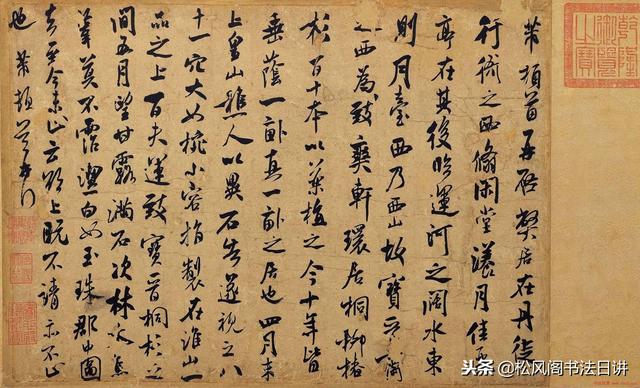 乾隆御覽之寶
芾頓首再啟弊居在丹徒
行衙之西翛閑堂漾月佳麗
亭在其後臨運河之闊水東
則月臺西乃西山故寶晉齋
之西為致爽軒環居桐柳椿
杉百十本以藥植之今十年皆
垂蔭一畝真一畝之居也四月末
上皇山樵人以異石告遂視之八
十一穴大如椀小容指製在淮山一
品之上百夫運致寶晉桐杉之
間五月望甘露滿石次林木焦
葦莫不霑潔白如玉珠郡中圖
去至今未止云欲上既不請亦不止
也芾頓首再拜
头条@松风阁书法日讲